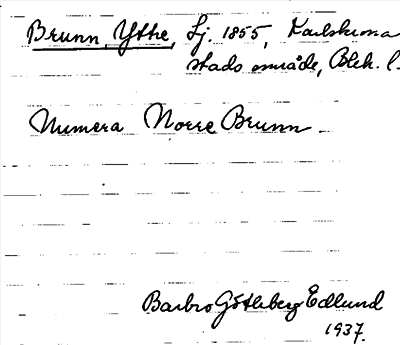 Brunn, Ythe, Lj. 1855, Karlskrona
stads område, Blek. l.
Numera Norre Brunn
Barbro Götheberg Edlund
1937.